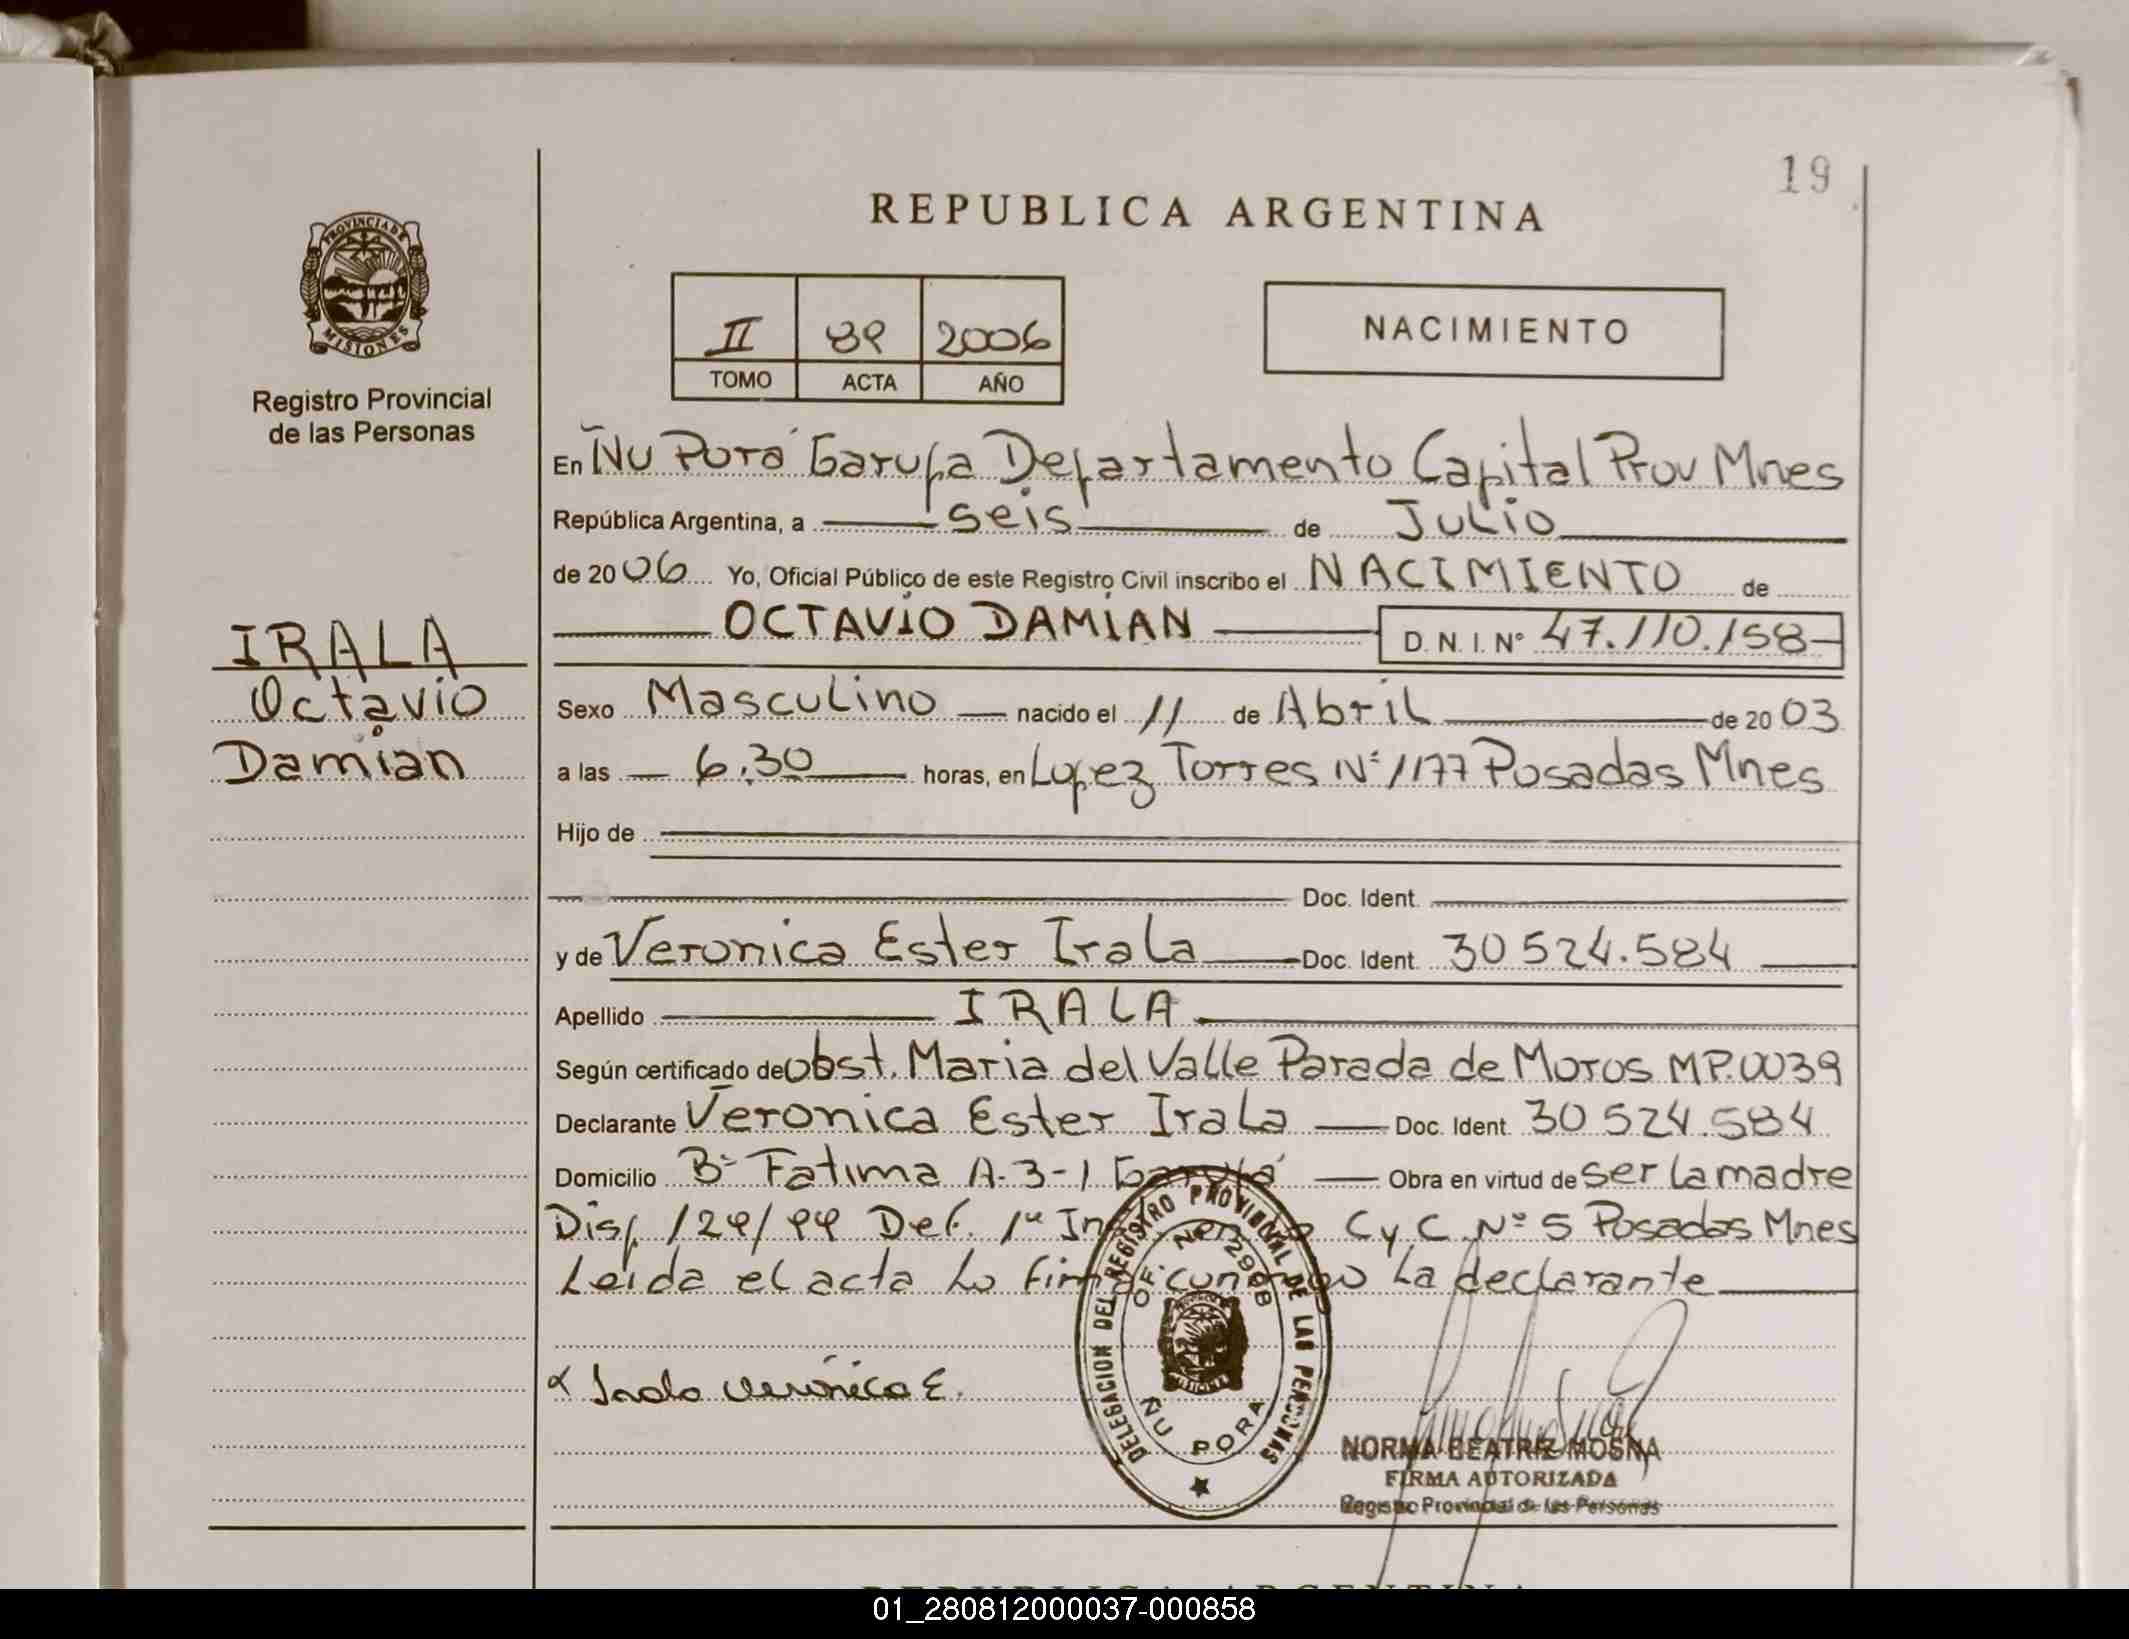 19
REPUBLICA ARGENTINA
PROVINCIA DE
MISIONES
Registro Provincial
de las Personas
II 89 2006
TOMO ACTA AÑO
NACIMIENTO
En Ñu Porá Garupa Departamento Capital Prov Mnes
República Argentina, a seis de Julio
de 2006 Yo, Oficial Público de este Registro Civil inscribo el NACIMIENTO de
OCTAVIO DAMIAN D.N.I. Nº 47.110.158
IRALA
Octavio
Damian
Sexo Masculino nacido el 11 de Abril de 2003
a las 6.30 horas, en Lopez Torres Nº 1177 Posadas Mnes
Hijo de
Doc. Ident.
y de Veronica Ester Irala Doc. Ident. 30 524.584
Apellido IRALA
Según certificado de obst. Maria del Valle Parada de Moros MP.0039
Declarante Veronica Ester Irala Doc. Ident. 30 524.584
Domicilio Bº Fatima A-3-1 Garupá Obra en virtud de ser la madre
Disp 129/99 Def. 1ª C y C Nº 5 Posadas Mnes
Leida el acta Lo firma conmigo La declarante
DELEGACION DEL REGISTRO PROVINCIAL DE LAS PERSONAS
OF. Nº 2908
ÑU PORA
Irala Veronica E.
NORMA BEATRIZ MOSNA
FIRMA AUTORIZADA
Registro Provincial de las Personas
REPUBLICA ARGENTINA
01_280812000037-000858